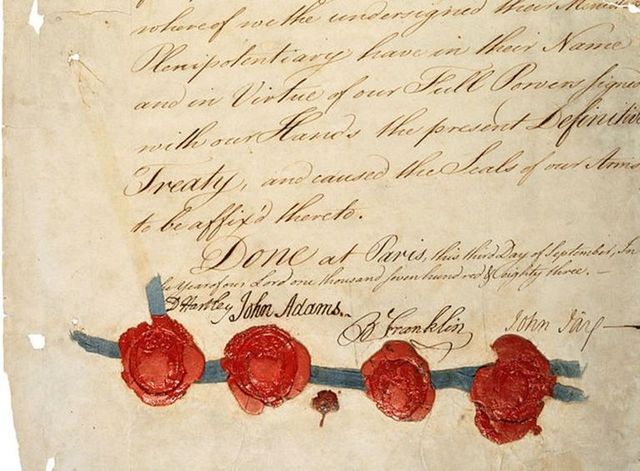 whereof we the undersigned their
Plenipotentiary have in their Name
and in Virtue of our Full Powers signed
with our Hands the present Definitive
Treaty, and caused the Seals of our Arms
to be affix'd thereto.
Done at Paris, this third Day of September, In
Year of our Lord one thousand seven hundred & eighty three.—
D Hartley John Adams. B Franklin John Jay—